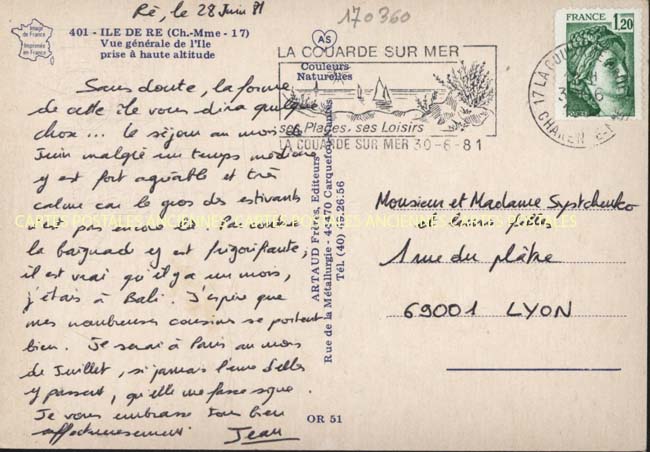 Ré, le 28 Juin 81
170360
Image de France
Imprimée en France
401 - ILE DE RE (Ch.-Mme - 17)
Vue générale de l'Ile
prise à haute altitude
Sans doute, la forme
de cette île vous dira quelque
chose... le séjour au mois de
Juin malgré un temps modéré
y est fort agréable et très
calme car le gros des estivants
n'est pas encore là. Par contre
la baignade y est frigorifiante,
il est vrai qu'il y a un mois,
j'étais à Bali. J'espère que
mes nombreuses cousins se portent
bien. Je serai à Paris au mois
de Juillet, si jamais l'une d'elles
y passait, qu'elle me fasse signe.
Je vous embrasse tous bien
affectueusement
Jean
AS
Couleurs
Naturelles
ARTAUD Frères, Editeurs
Rue de la Métallurgie - 44-470 Carquefou-Nantes
Tél. (40) 49.26.56
OR 51
LA COUARDE SUR MER
ses Plages, ses Loisirs
LA COUARDE SUR MER 30-6-81
17 LA COU
CHAREN
FRANCE
1,20
POSTES
Monsieur et Madame Systchenko
et leurs filles
1 rue du plâtre
69001 LYON
CARTES POSTALES ANCIENNES CARTES POSTALES ANCIENNES CARTES POSTALES